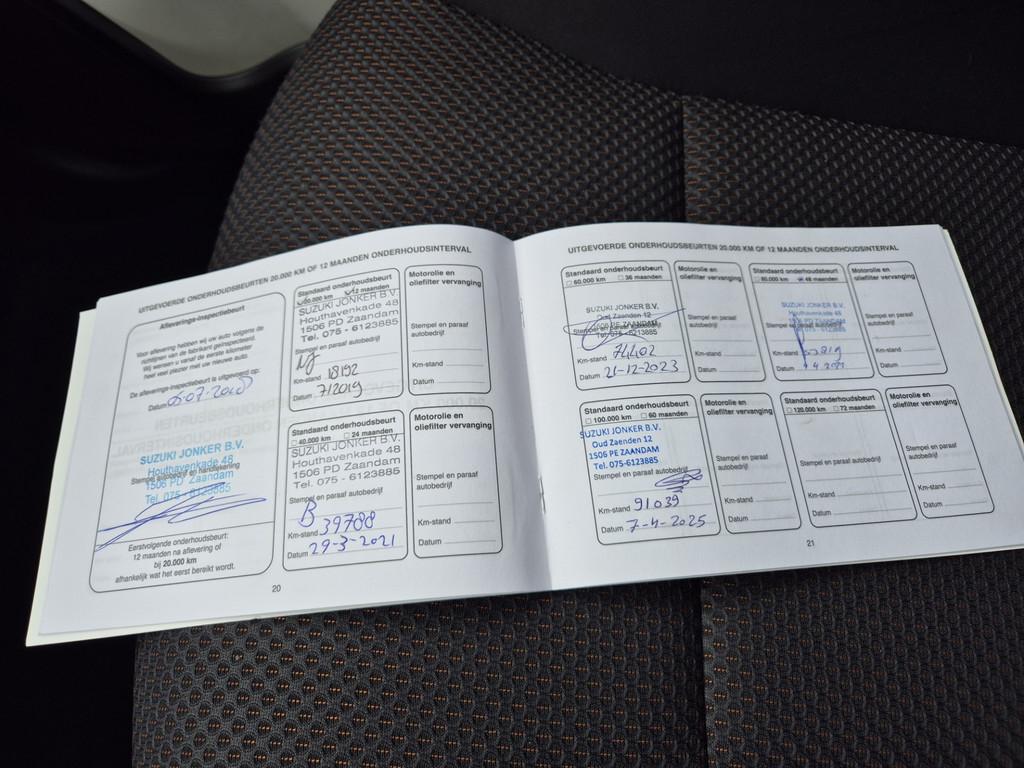 UITGEVOERDE ONDERHOUDSBEURTEN 20.000 KM OF 12 MAANDEN ONDERHOUDSINTERVAL
Afleverings-inspectiebeurt
Voor aflevering hebben wij uw auto volgens de
richtlijnen van de fabrikant geïnspecteerd.
Wij wensen u vanaf de eerste kilometer
heel veel plezier met uw nieuwe auto.
De afleverings-inspectiebeurt is uitgevoerd op:
Datum 05-07-2018
SUZUKI JONKER B.V.
Houthavenkade 48
Stempel autobedrijf en handtekening
1506 PD Zaandam
Tel. 075 - 6123885
Eerstvolgende onderhoudsbeurt:
12 maanden na aflevering of
bij 20.000 km
afhankelijk wat het eerst bereikt wordt.
Standaard onderhoudsbeurt
20.000 km 12 maanden
SUZUKI JONKER B.V.
Houthavenkade 48
1506 PD Zaandam
Tel. 075 - 6123885
Stempel en paraaf autobedrijf
Km-stand 18192
Datum 7/2019
Motorolie en
oliefilter vervanging
Stempel en paraaf
autobedrijf
Km-stand
Datum
Standaard onderhoudsbeurt
40.000 km 24 maanden
SUZUKI JONKER B.V.
Houthavenkade 48
1506 PD Zaandam
Tel. 075 - 6123885
Stempel en paraaf autobedrijf
B
Km-stand 39788
Datum 29-3-2021
Motorolie en
oliefilter vervanging
Stempel en paraaf
autobedrijf
Km-stand
Datum
20
UITGEVOERDE ONDERHOUDSBEURTEN 20.000 KM OF 12 MAANDEN ONDERHOUDSINTERVAL
Standaard onderhoudsbeurt
60.000 km 36 maanden
SUZUKI JONKER B.V.
Oud Zaenden 12
1506 PE ZAANDAM
Stempel en paraaf autobedrijf
Tel. 075-6123885
Km-stand 74402
Datum 21-12-2023
Motorolie en
oliefilter vervanging
Stempel en paraaf
autobedrijf
Km-stand
Datum
Standaard onderhoudsbeurt
80.000 km 48 maanden
SUZUKI JONKER B.V.
Stempel en paraaf autobedrijf
Km-stand
Datum
Motorolie en
oliefilter vervanging
Stempel en paraaf
autobedrijf
Km-stand
Datum
Standaard onderhoudsbeurt
100.000 km 60 maanden
SUZUKI JONKER B.V.
Oud Zaenden 12
1506 PE ZAANDAM
Tel. 075-6123885
Stempel en paraaf autobedrijf
Km-stand 91039
Datum 7-4-2025
Motorolie en
oliefilter vervanging
Stempel en paraaf
autobedrijf
Km-stand
Datum
Standaard onderhoudsbeurt
120.000 km 72 maanden
Stempel en paraaf autobedrijf
Km-stand
Datum
Motorolie en
oliefilter vervanging
Stempel en paraaf
autobedrijf
Km-stand
Datum
21